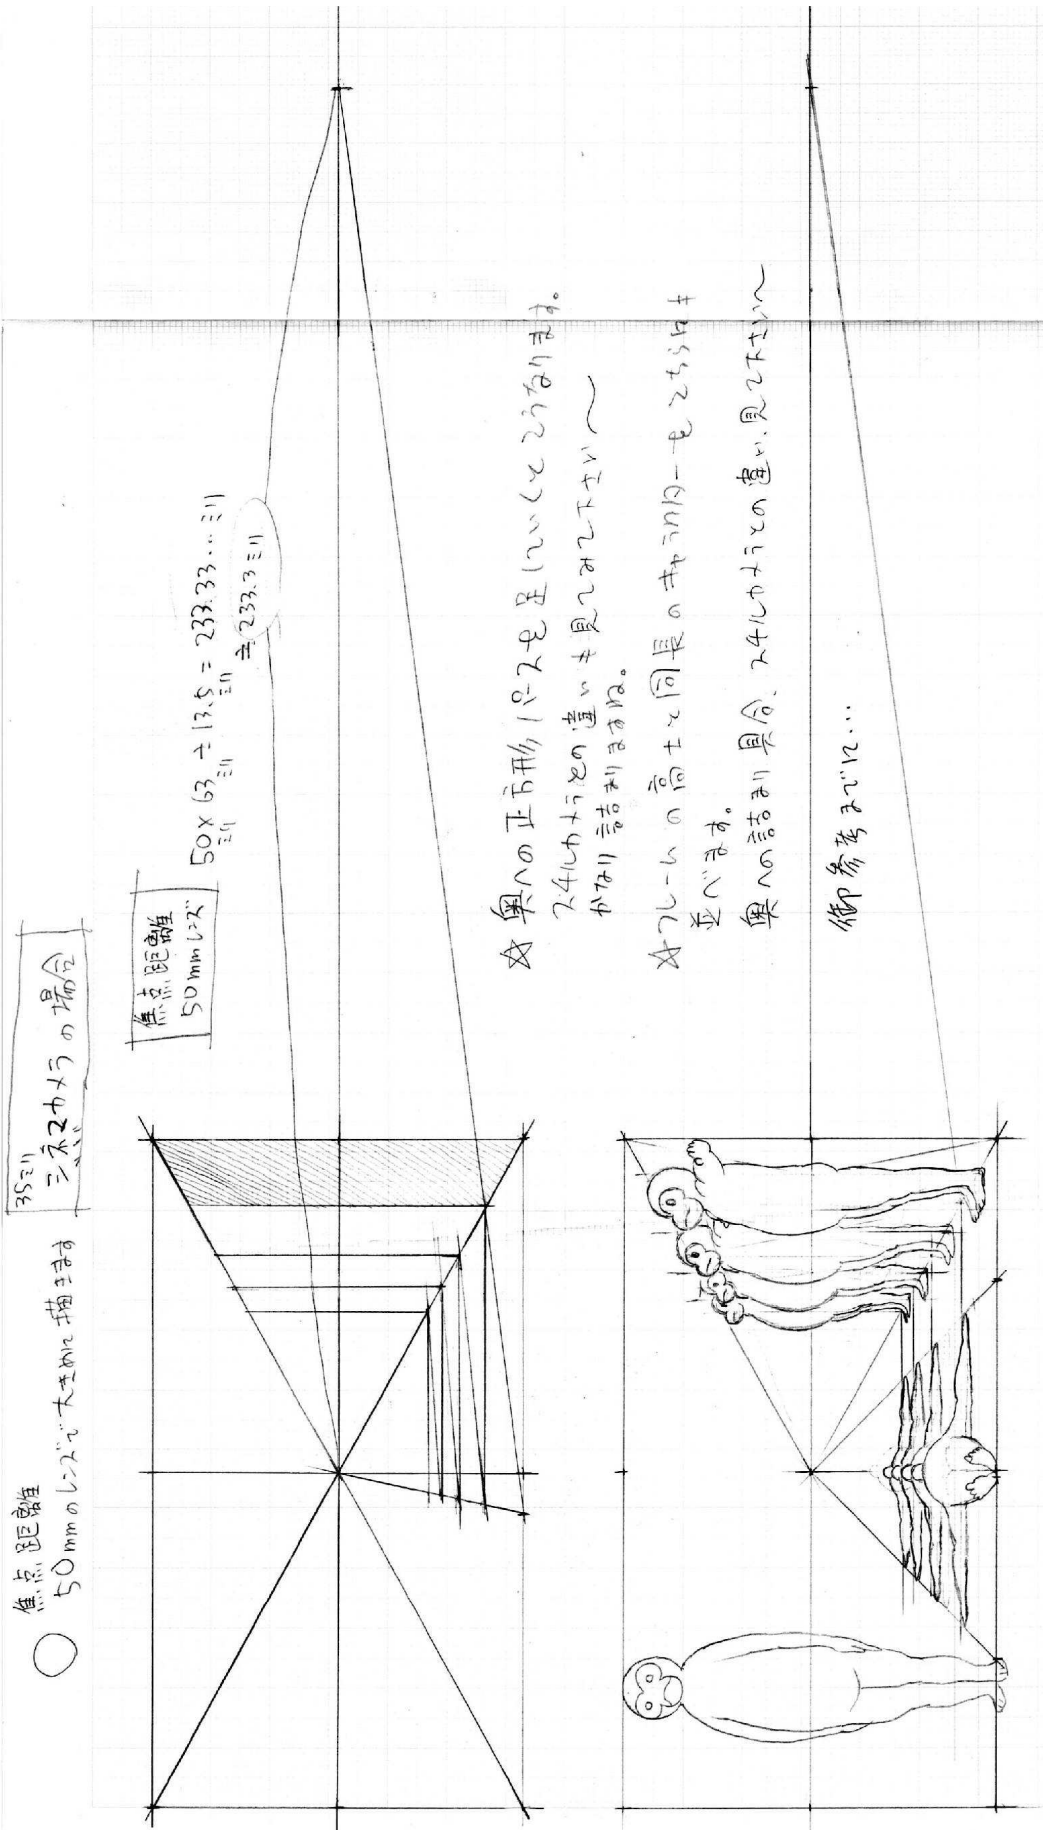 ○ 焦点距離
50mmのレンズで大きめに描きます
35ミリ
シネマカメラの場合
焦点距離
50mmレンズ
50×63÷13.5=233.33…ミリ
ミリ ミリ ミリ
≒233.3ミリ
☆奥への正方形パースを足していくとこうなります。
スチルカメラとの違いも見てみて下さい〜
かなり詰まりますね。
☆フレームの高さと同長のキャラクターをこちらにも
並べます。
奥への詰まり具合、スチルカメラとの違い、見て下さい〜
御参考までに…